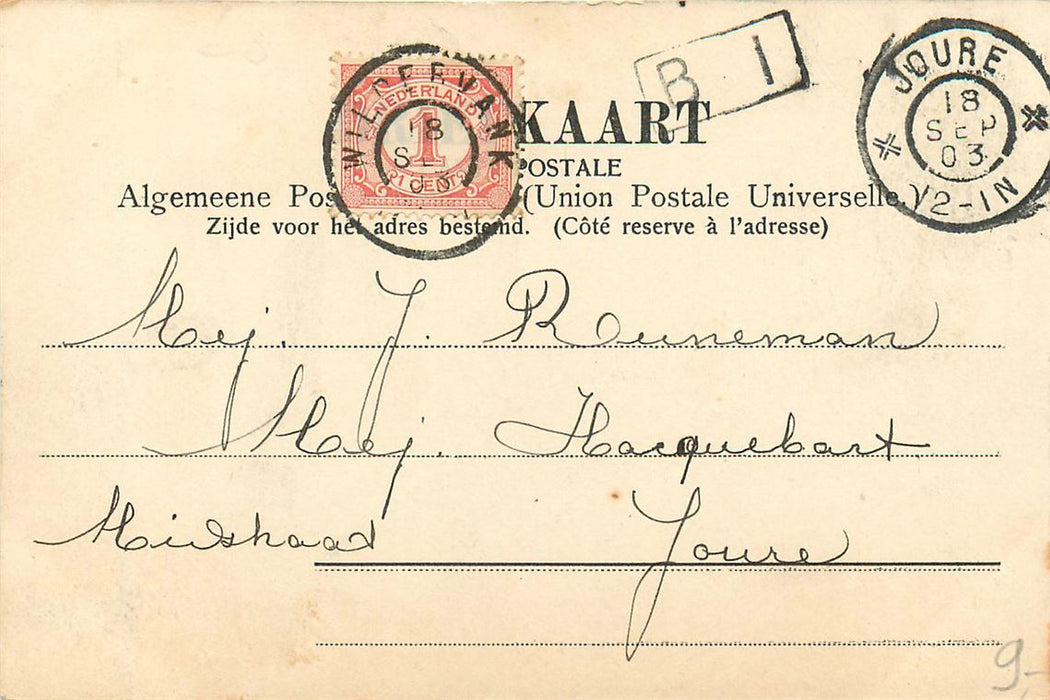 B I
JOURE
18
SEP
03
12-1N
WILDERVANK
18
SE
NEDERLAND
1
1 CENT
KAART
POSTALE
Algemeene Pos (Union Postale Universelle.)
Zijde voor het adres bestemd. (Côté reserve à l'adresse)
Mej. J. Reuneman
Mej. Hacquebart
Midstraat
Joure
9-